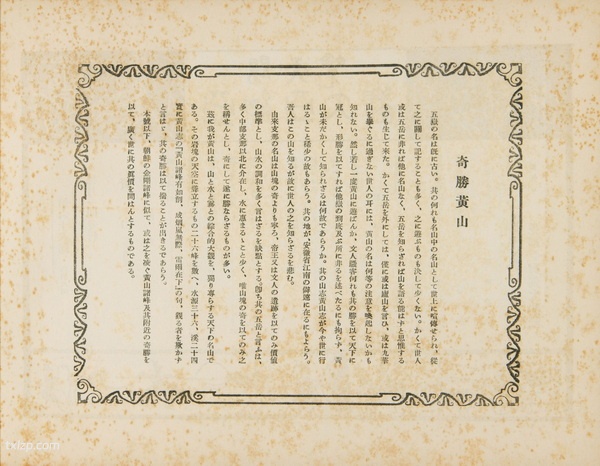 奇勝黃山
五嶽の名は既に古い。其の何れも名山中の名山として世上に喧傳せられ、從
て之に關して記することも多く、之に遊ぶものも決して少くない。かくて世人
或は五岳に非れば他に名山なく、五岳を知らざれば山を語る能はずと思惟する
ものも生じて來た。かくて五岳を外にしては、僅に或は廬山を言ひ、或は九華
山を擧ぐるに過ぎない世人の耳には、黃山の名は何等の注意を喚起しないかも
知れない。然し若し一度黃山に遊ばんか、文人墨客何れも其の勝を以て天下に
冠とし、形勝を以てすれば他嶽の到底及ぶ所に非るを述べたるにも拘らず、黃
山が未だかくして知られざるは何故であらうか。其の山志黃山志が今や世に行
はるゝこと稀少の故もあらう。其の地が、安徽省江南の僻遠に在るにもよらう。
吾人はこの山を知るが故に世人の之を知らざるを悲む。
由來支那の名山は山嶺の奇よりも寧ろ、帝王又は文人の遺跡を以てのみ價値
の標準とし、山水の調和を多く言はざるを缺點とする。卽ち其の五岳と言ふは、
多く中部支那以北に介在し、水に惠まるゝこと少く、唯山塊の奇を以てのみ之
を稱せんとし、奇にして遂に勝ならざるものが多い。
茲に我が黃山は、山と水と緣との綜合的大觀を、獨り專らする天下の名山で
ある。その岩塊の天空に聳立するもの三十六峰を數へ、水源三十六、溪二十四
實に黃山志の「黃山諸峰有如削、成烟嵐無際、雷雨在下」の句、觀る者を驚かす
と言はゞ、其の奇勝は以て推ることが出きるであらう。
本號以下、朝鮮の金剛諸峰に似て、或は之を凌ぐ黃山諸峰及其附近の奇勝を
以て、廣く世に其の眞價を問はんとするものである。
txlzp.com